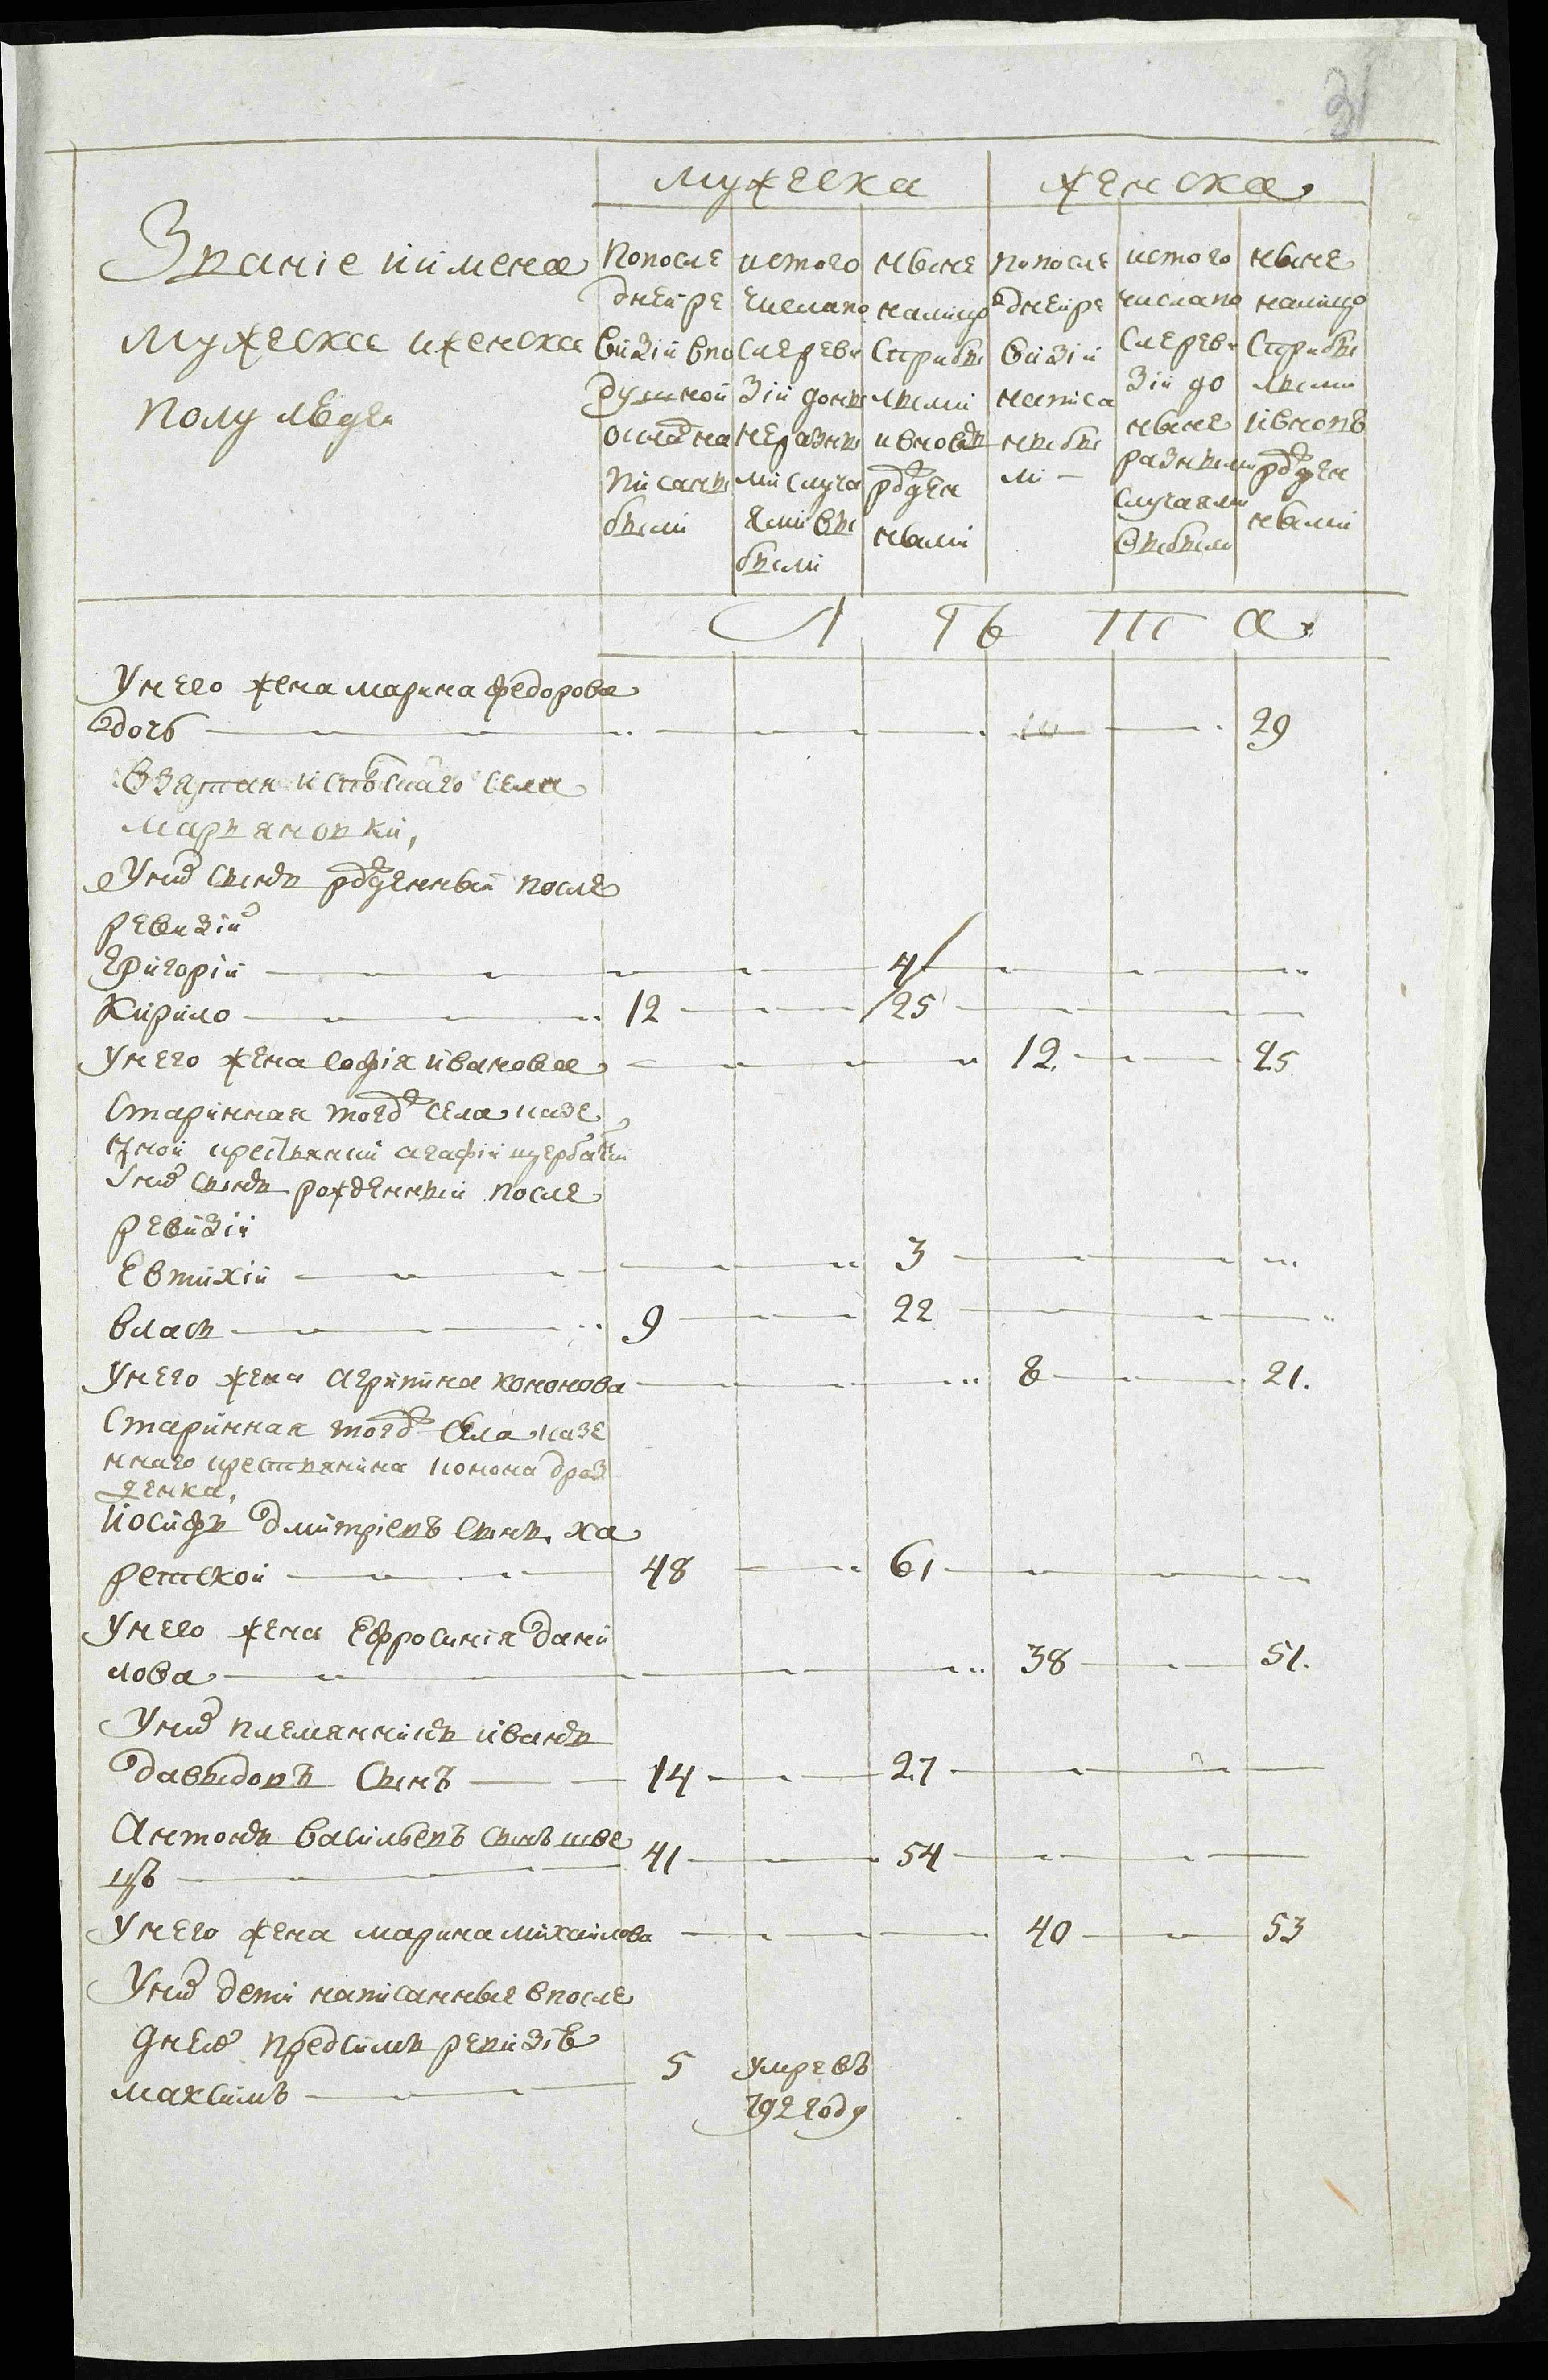 31
мужеска женска
Званіе иимена
мужеска иженска
полу людеи
попосле
днеи ре
визіи впо
душнои
окладна
писаны
были
истого
числапо
слереви
зіи доны
неразны
ми случа
ями вы
были
ныне
налицо
сприбы
лыми
ивновь
рожден
ными
попосле
днеире
визіи
написа
ны бы
ли
истого
числапо
слереви
зіи до
ныне
разными
случаями
выбыли
ныне
налицо
сприбы
лыми
ивновь
рожден
ными
Л ѣ т а
Унего жена марина федорова
дочь 16 29
Взятая
марьяновки,
Унихъ сынъ рожденный после
ревизіи
Григорій 4
Кирило 12 25
Унего жена софія иванова 12 25
Старинная тогожъ села казе
нной крестьянки агафіи щербачки
Унихъ сынъ рожденный после
ревизіи
Евтихій 3
Власъ 9 22
Унего жена агрипина кононова 8 21.
Старинная тогожъ села казе
ннаго крестьянина конона
Иосифъ дмитріевъ сынъ ха
ретской 48 61
Унего жена Ефросинія дани
лова 38 51.
Унихъ племянникъ иванъ
давыдовъ сынъ 14 27
Антонъ васильевъ сынъ шве
цъ 41 54
Унего жена марина михайлова 40 53
Унихъ дети написанные впосле
днеи предсимъ ревизіи
максимъ 5 умревъ
792 году